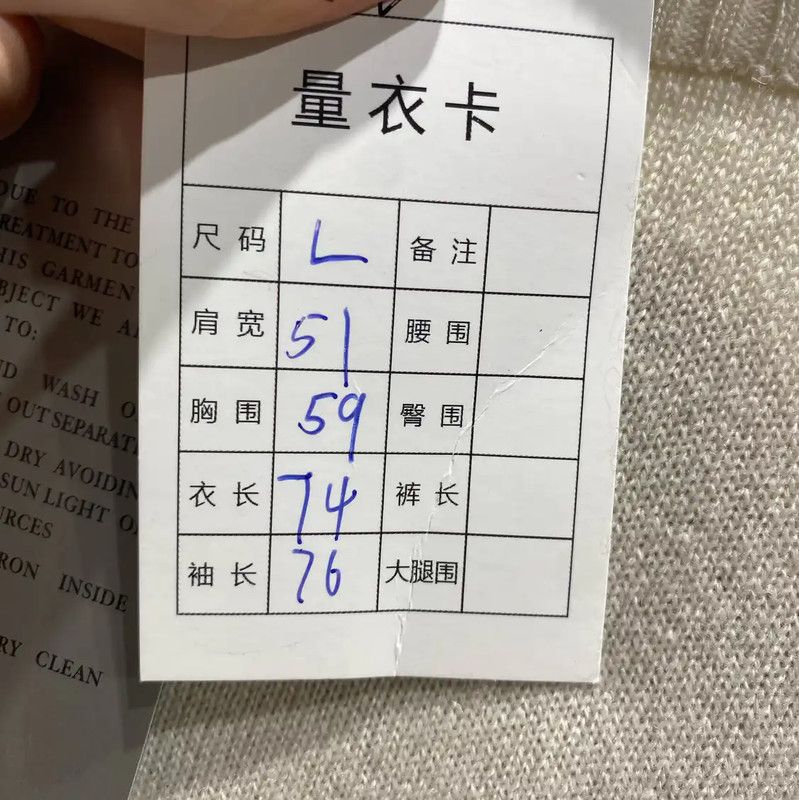 量衣卡
尺码 L 备注
肩宽 51 腰围
胸围 59 臀围
衣长 74 裤长
袖长 76 大腿围
DUE TO THE
TREATMENT TO
THIS GARMEN
BJECT WE A
TO:
WASH
OUT SEPARAT
DRY AVOIDIN
SUN LIGHT O
URCES
RON INSIDE
RY CLEAN